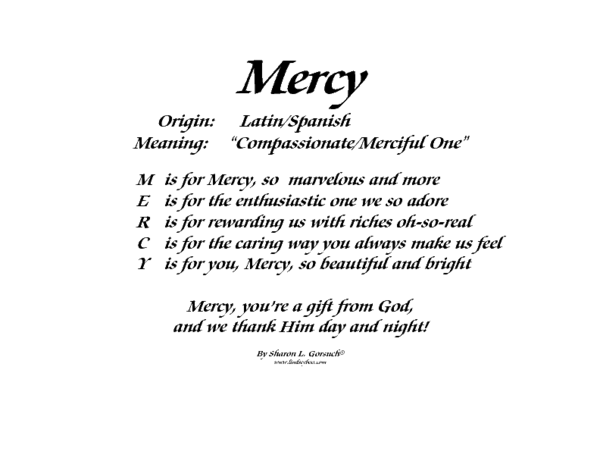 Mercy
Origin: Latin/Spanish
Meaning: "Compassionate/Merciful One"
M is for Mercy, so marvelous and more
E is for the enthusiastic one we so adore
R is for rewarding us with riches oh-so-real
C is for the caring way you always make us feel
Y is for you, Mercy, so beautiful and bright
Mercy, you're a gift from God,
and we thank Him day and night!
By Sharon L. Gorsuch©